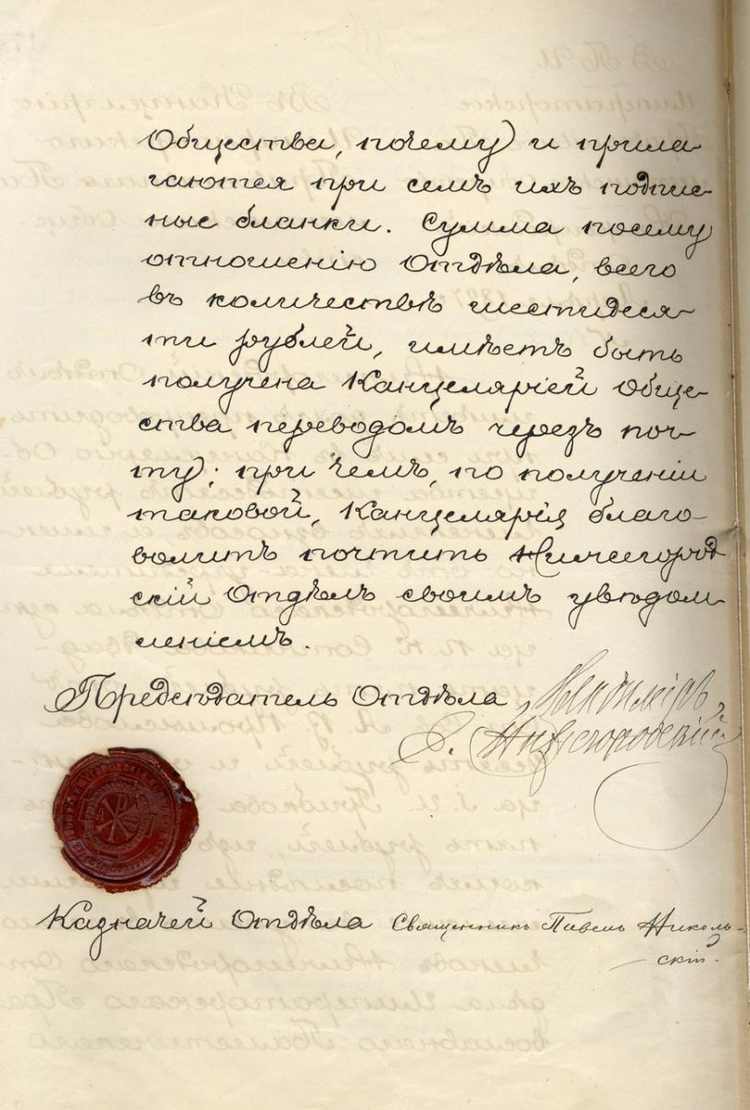 Общества, почему и прила-
гаются при семъ ихъ подпис-
ные бланки. Сумма посему
отношенію Отдѣла, всего
въ количествѣ шестидеся-
ти рублей, имѣетъ быть
получена Канцеляріей Обще-
ства переводомъ черезъ поч-
ту; при чемъ, по полученіи
таковой, Канцелярія благо-
волитъ почтить Нижегород-
скій Отдѣлъ своимъ уведом-
леніемъ.
Председатель Отдѣла
Е. Нижегородскій
Казначей Отдѣла Священникъ Павелъ Николь-
скій.